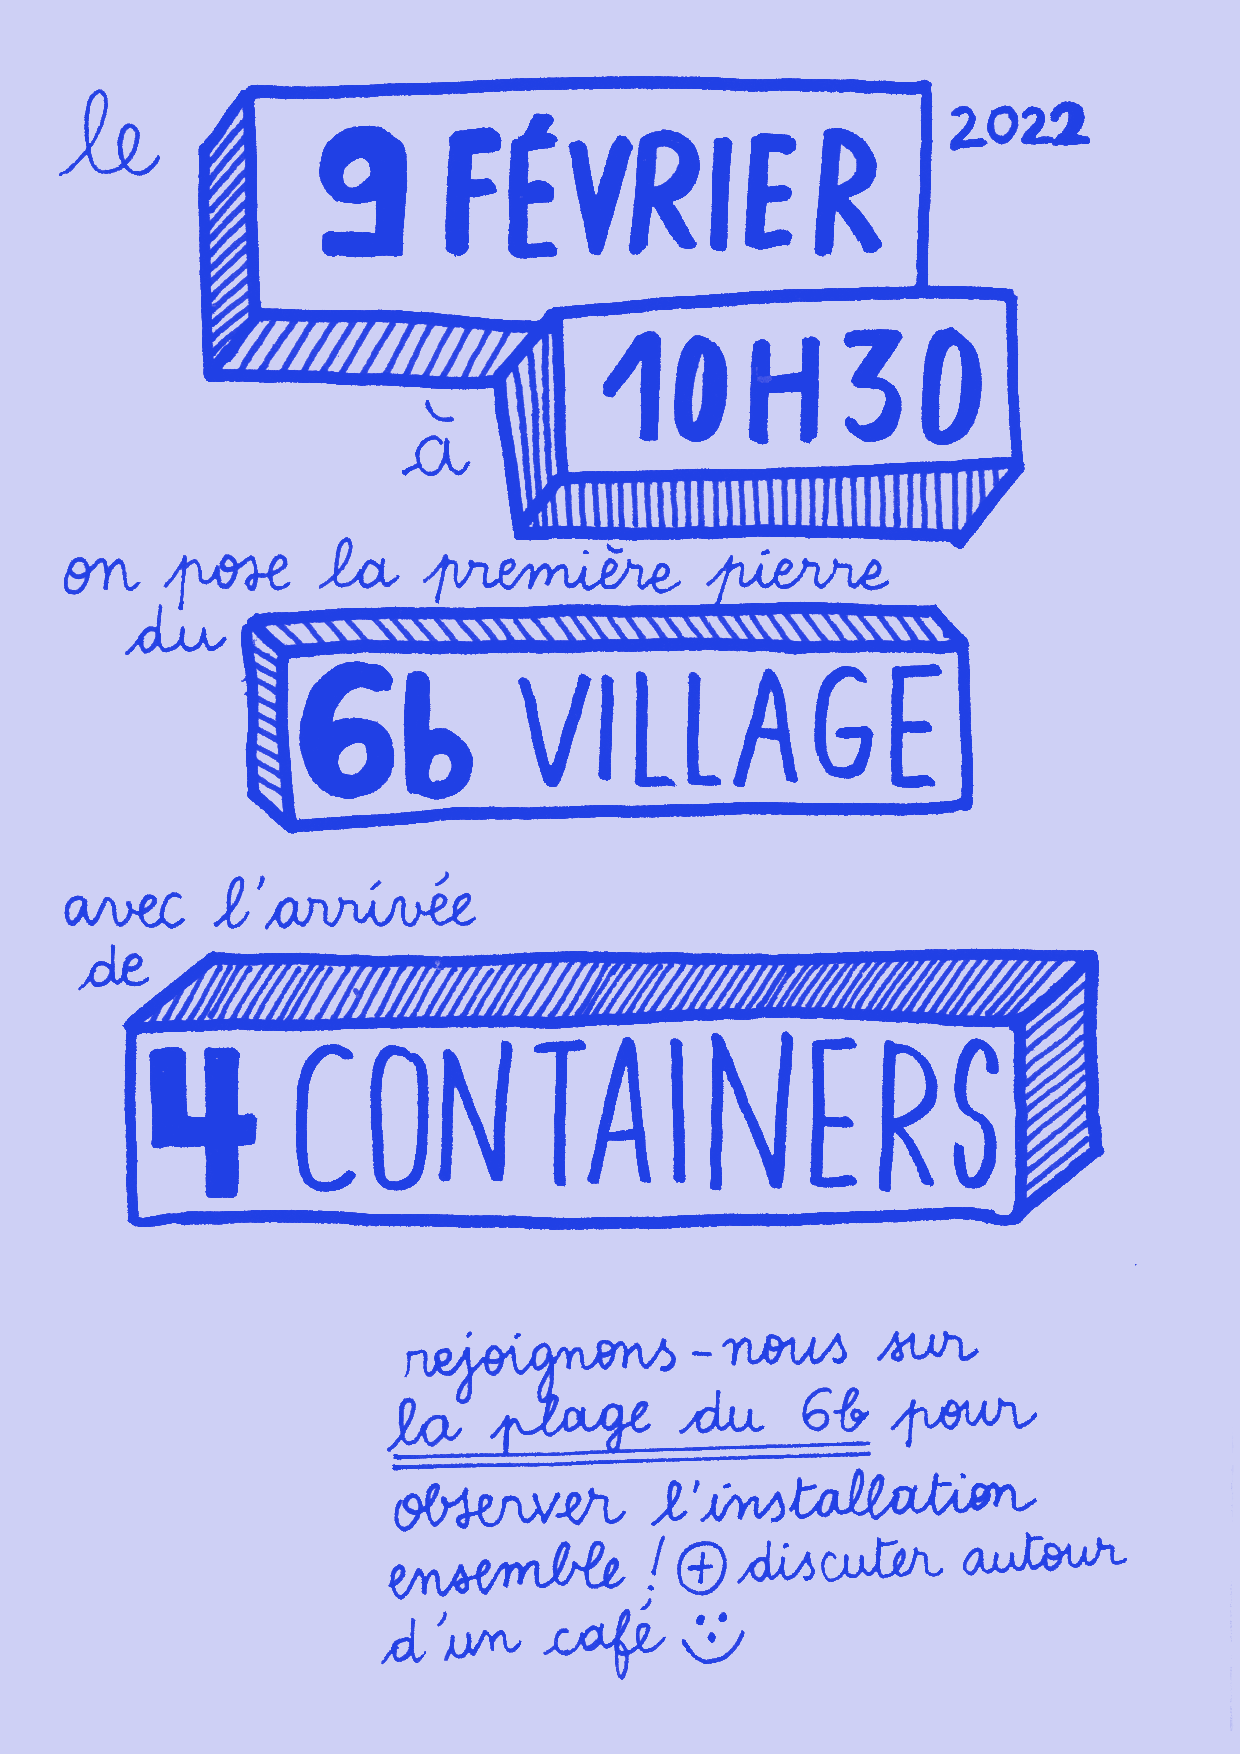 le 9 FÉVRIER 2022
à 10H30
on pose la première pierre
du
6b VILLAGE
avec l'arrivée
de
4 CONTAINERS
rejoignons-nous sur
la plage du 6b pour
observer l'installation
ensemble ! + discuter autour
d'un café